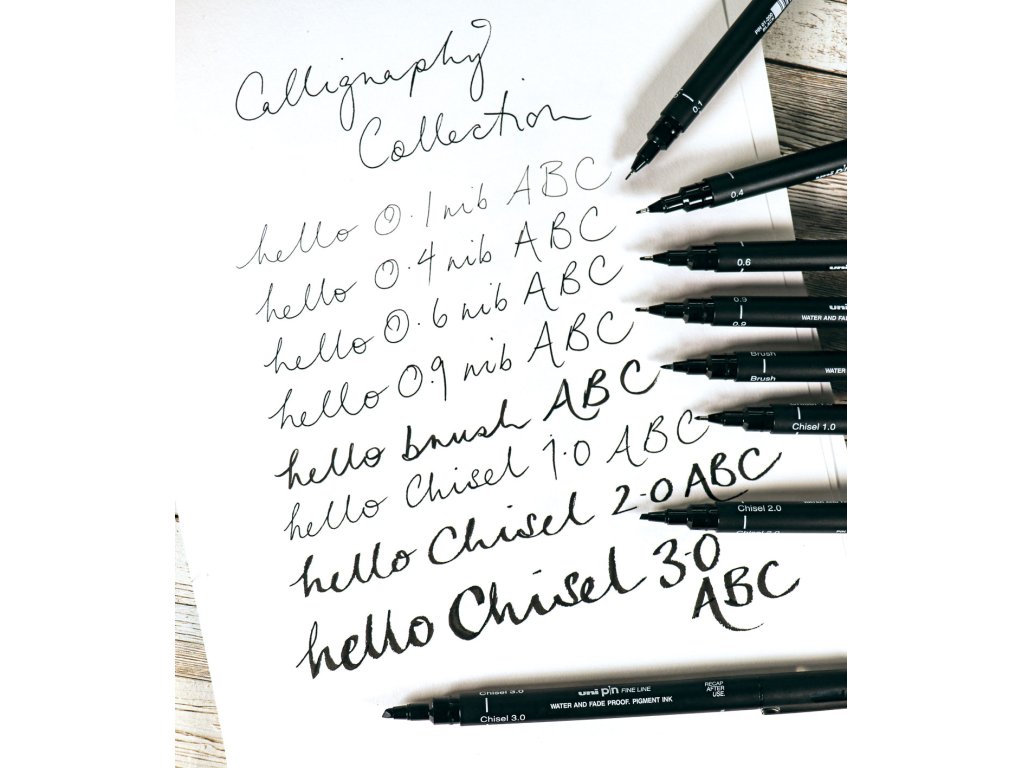 Calligraphy
Collection
hello 0.1 nib ABC
hello 0.4 nib ABC
hello 0.6 nib ABC
hello 0.9 nib ABC
hello brush ABC
hello Chisel 1.0 ABC
hello Chisel 2.0 ABC
hello Chisel 3.0
ABC
0.1
0.4
uni pin
0.6
uni
0.9
0.9
uni
WATER AND FA
Brush
Brush
WATER
Chisel 1.0
Chisel 2.0
Chisel 3.0
Chisel 3.0
uni pin FINE LINE
WATER AND FADE PROOF, PIGMENT INK
RECAP
AFTER
USE.